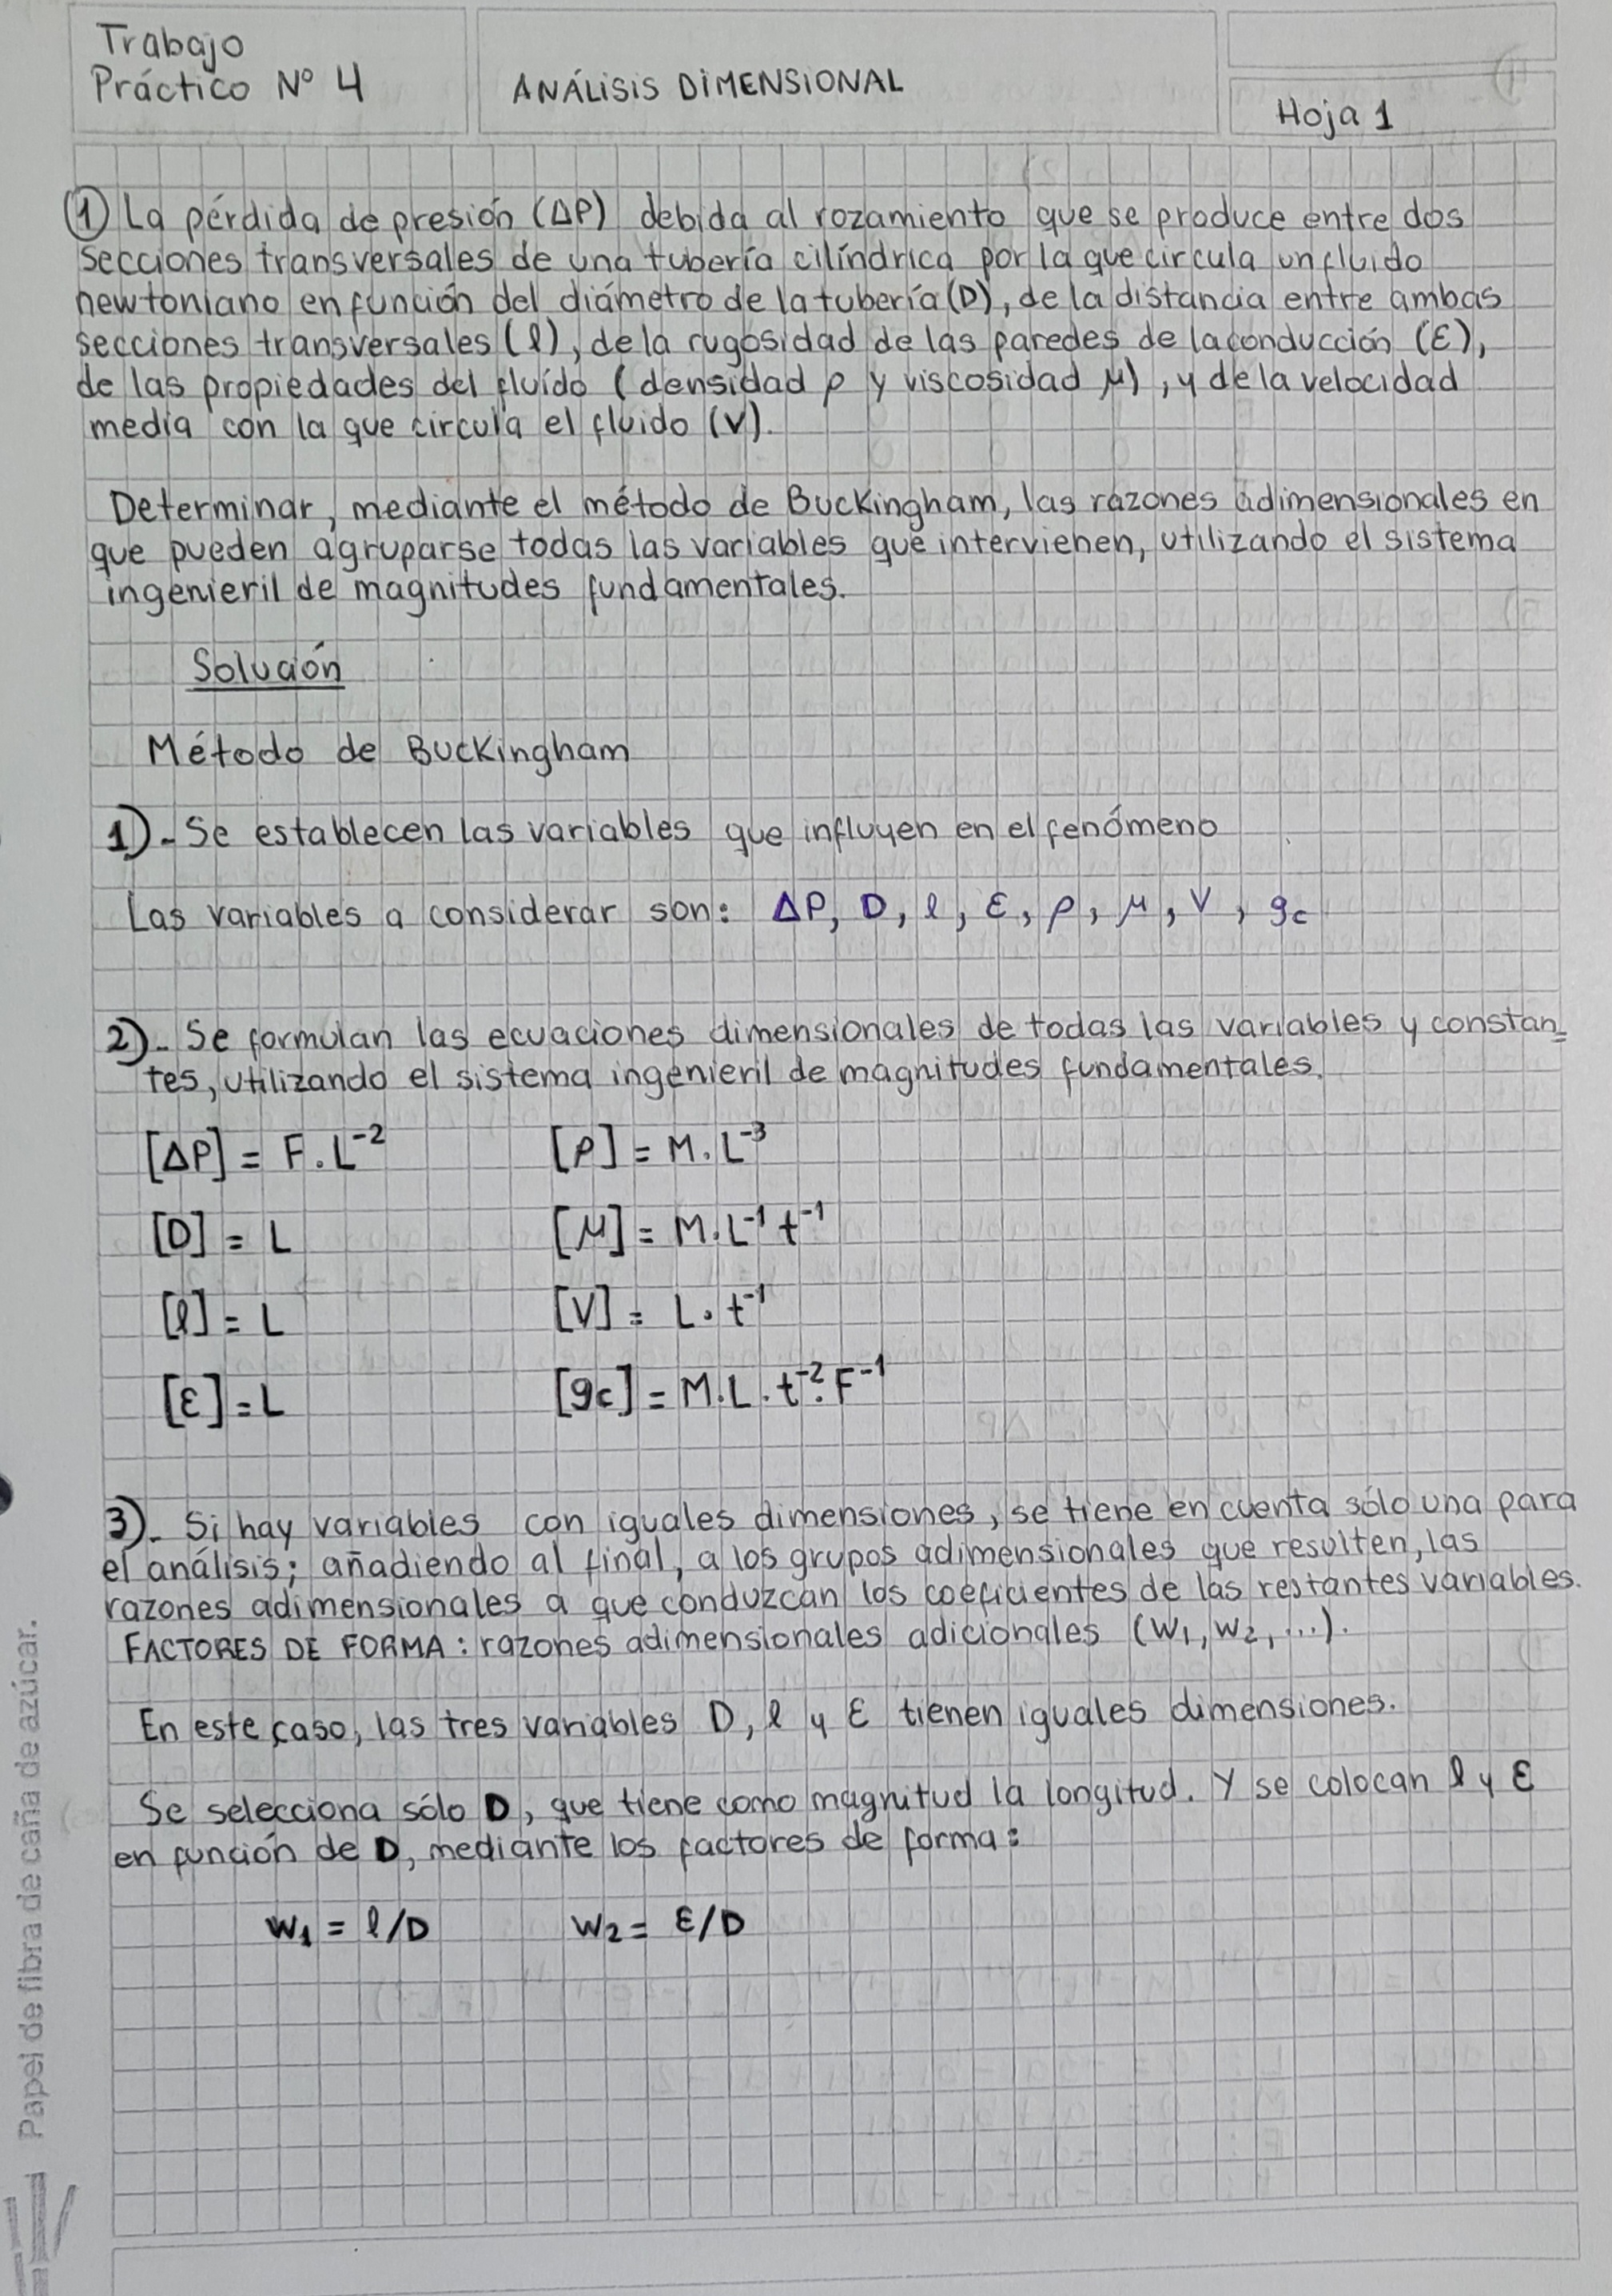 Trabajo
Práctico Nº 4
ANÁLISIS DIMENSIONAL
Hoja 1
① La pérdida de presión (ΔP) debida al rozamiento que se produce entre dos
secciones transversales de una tubería cilíndrica por la que circula un fluido
newtoniano en función del diámetro de la tubería (D), de la distancia entre ambas
secciones transversales (l), de la rugosidad de las paredes de la conducción (ε),
de las propiedades del fluído (densidad ρ y viscosidad μ), y de la velocidad
media con la que circula el fluido (V).
Determinar, mediante el método de Buckingham, las razones adimensionales en
que pueden agruparse todas las variables que intervienen, utilizando el sistema
ingenieril de magnitudes fundamentales.
Solución
Método de Buckingham
1).- Se establecen las variables que influyen en el fenómeno
Las variables a considerar son: ΔP, D, l, ε, ρ, μ, V, gc
2).- Se formulan las ecuaciones dimensionales de todas las variables y constan-
tes, utilizando el sistema ingenieril de magnitudes fundamentales.
[ΔP] = F.L⁻² [ρ] = M.L⁻³
[D] = L [μ] = M.L⁻¹ t⁻¹
[l] = L [V] = L.t⁻¹
[ε] = L [gc] = M.L.t⁻².F⁻¹
3).- Si hay variables con iguales dimensiones, se tiene en cuenta sólo una para
el análisis; añadiendo al final, a los grupos adimensionales que resulten, las
razones adimensionales a que conduzcan los coeficientes de las restantes variables.
FACTORES DE FORMA: razones adimensionales adicionales (W₁, W₂, ...).
En este caso, las tres variables D, l y ε tienen iguales dimensiones.
Se selecciona sólo D, que tiene como magnitud la longitud. Y se colocan l y ε
en función de D, mediante los factores de forma:
W₁ = l/D W₂ = ε/D
Papel de fibra de caña de azúcar.